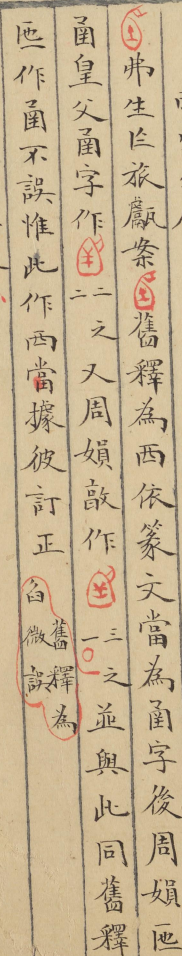 弗生亾旅甗案舊釋為西依篆文當為圅字後周娟匜
圅皇父圅字作二之二又周娟敦作三之一並與此同舊釋
匜作圅不誤惟此作西當據彼訂正
舊釋為
微誤